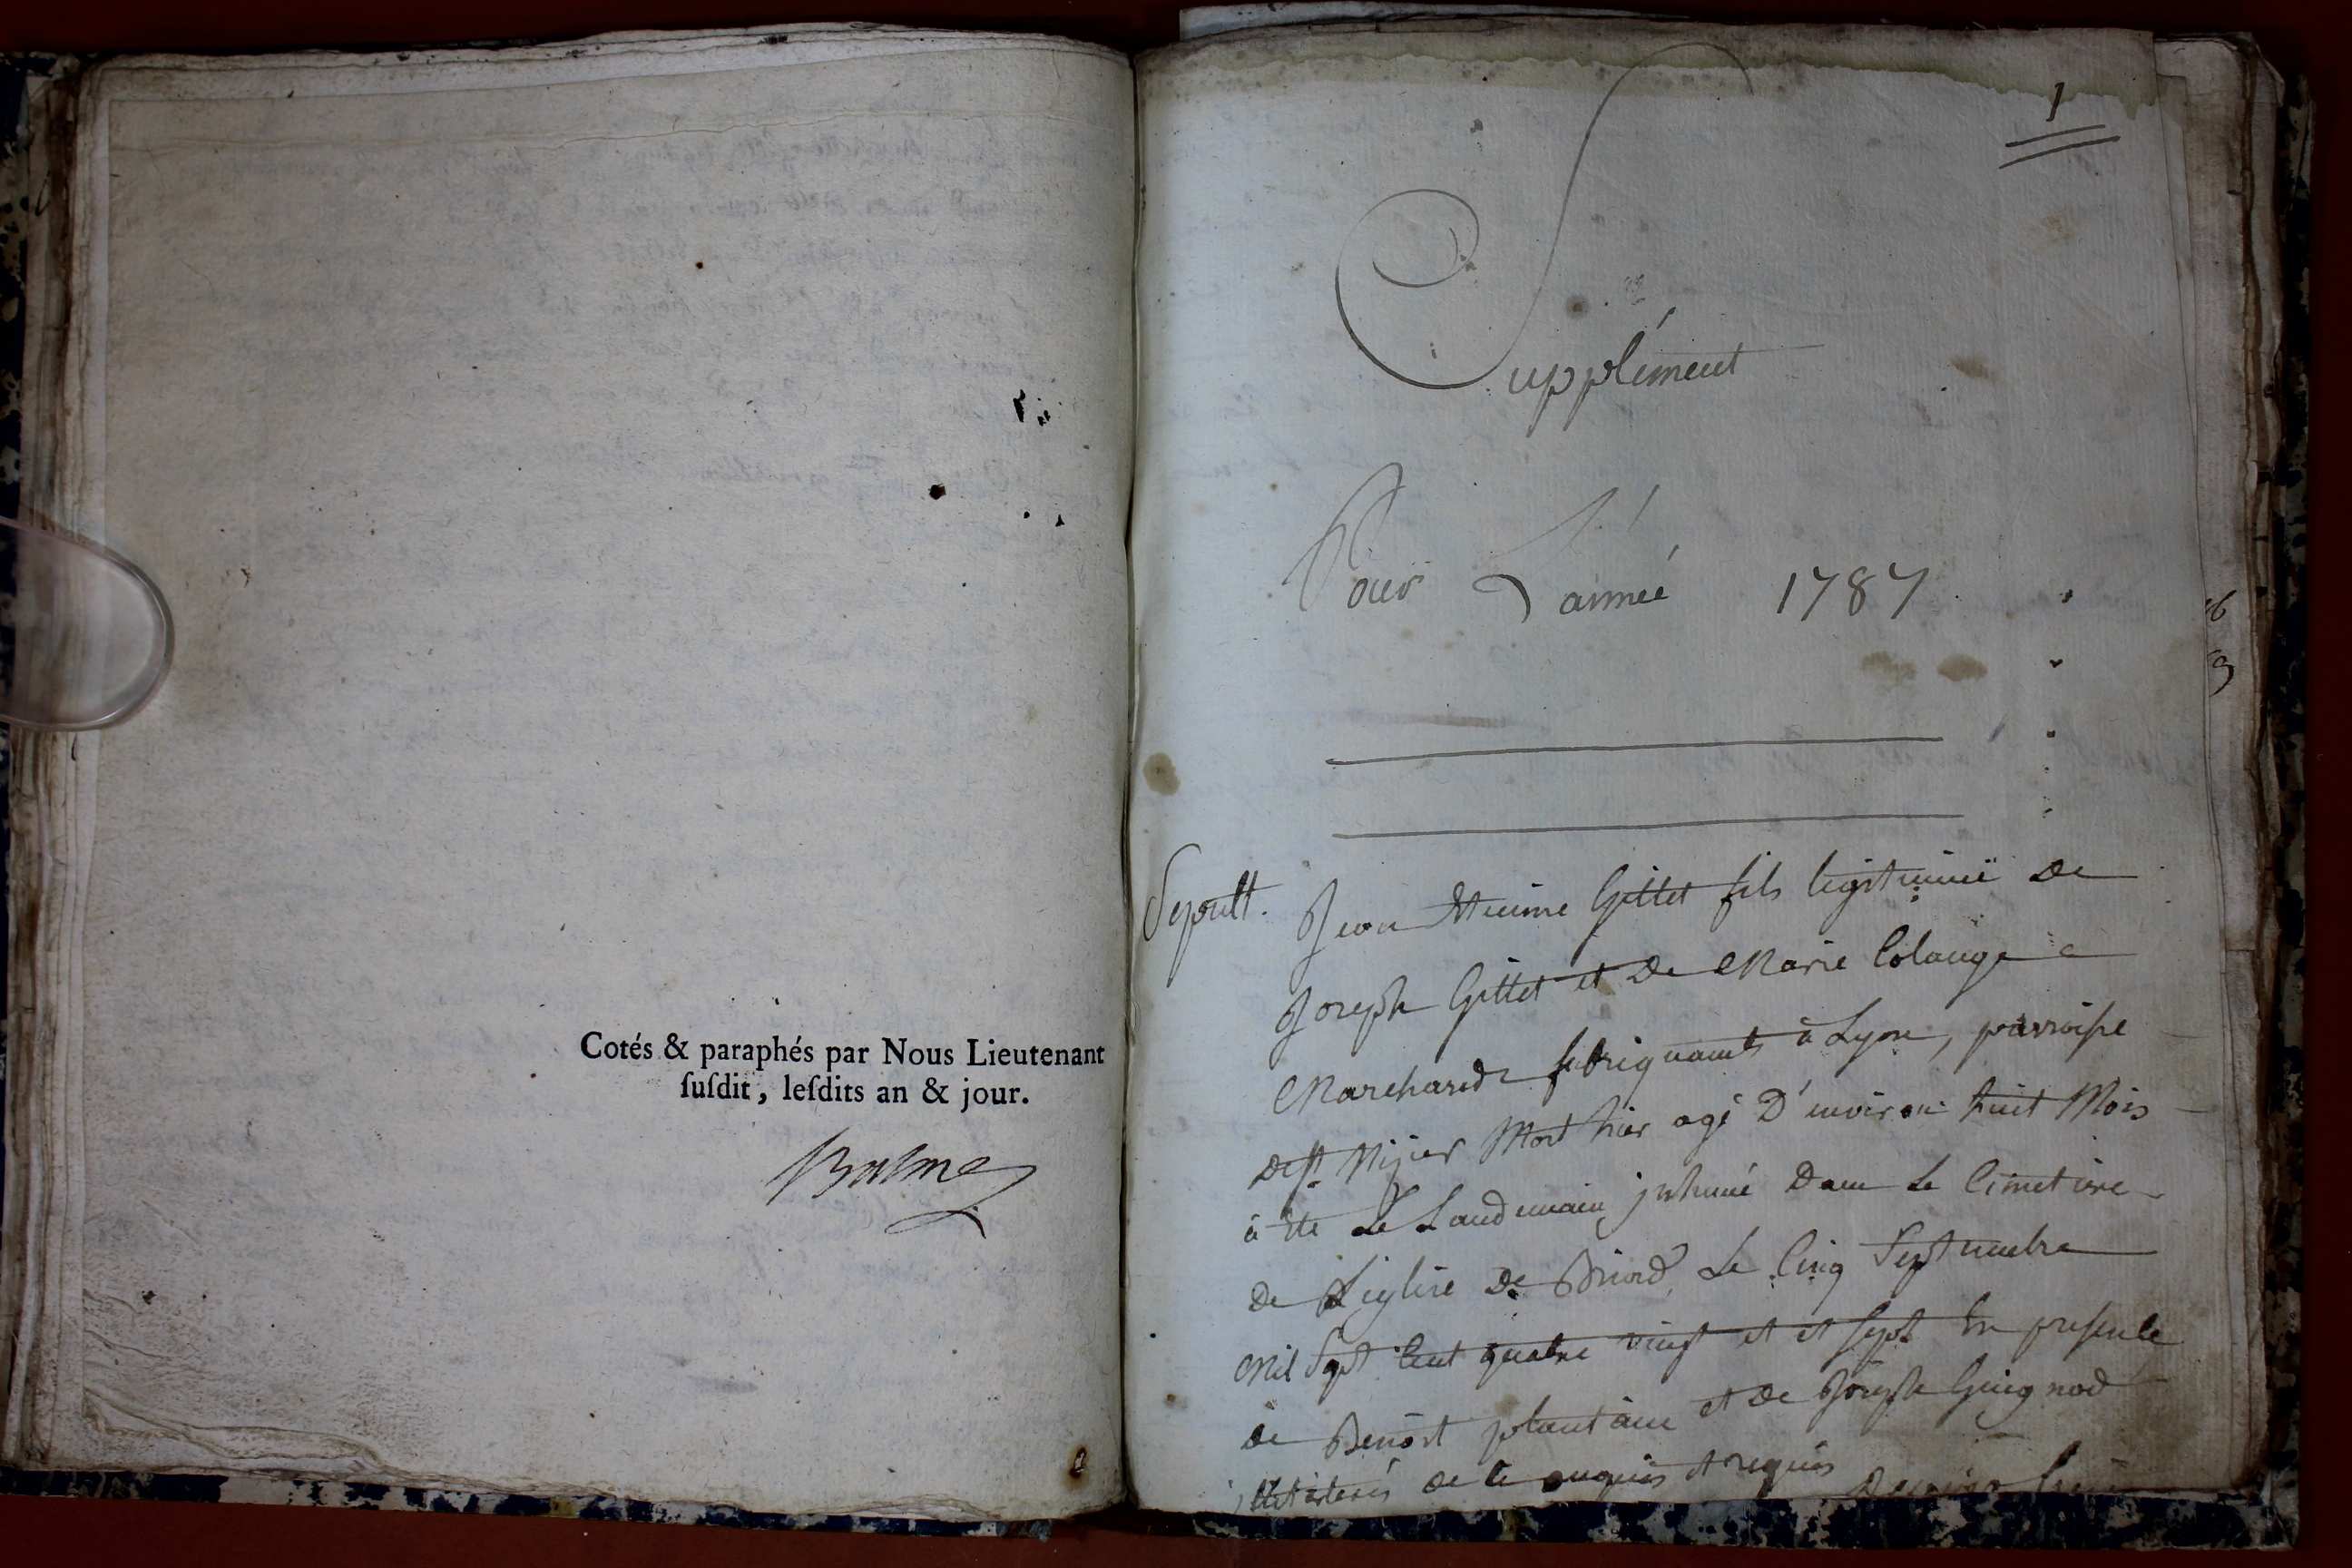 Cotés & paraphés par Nous Lieutenant
ſuſdit, leſdits an & jour.
Balme
1
Supplément
Pour L'année 1787
Sepult. Jean Etienne Gillet fils legitime de
Joseph Gillet et De Marie Colange
Marchands fabriquants à Lyon, parroisse
de st. Nizier Mort hier agé D'environ huit Mois
à été Le Landemain inhumé Dans Le Cimetiere
de L'eglise De Briord, Le Cinq Septembre
Mil Sept Cent quatre vingt et et sept En presence
de Benoit plantain et de Joseph Guignod
illiterés de ce enquis et requis